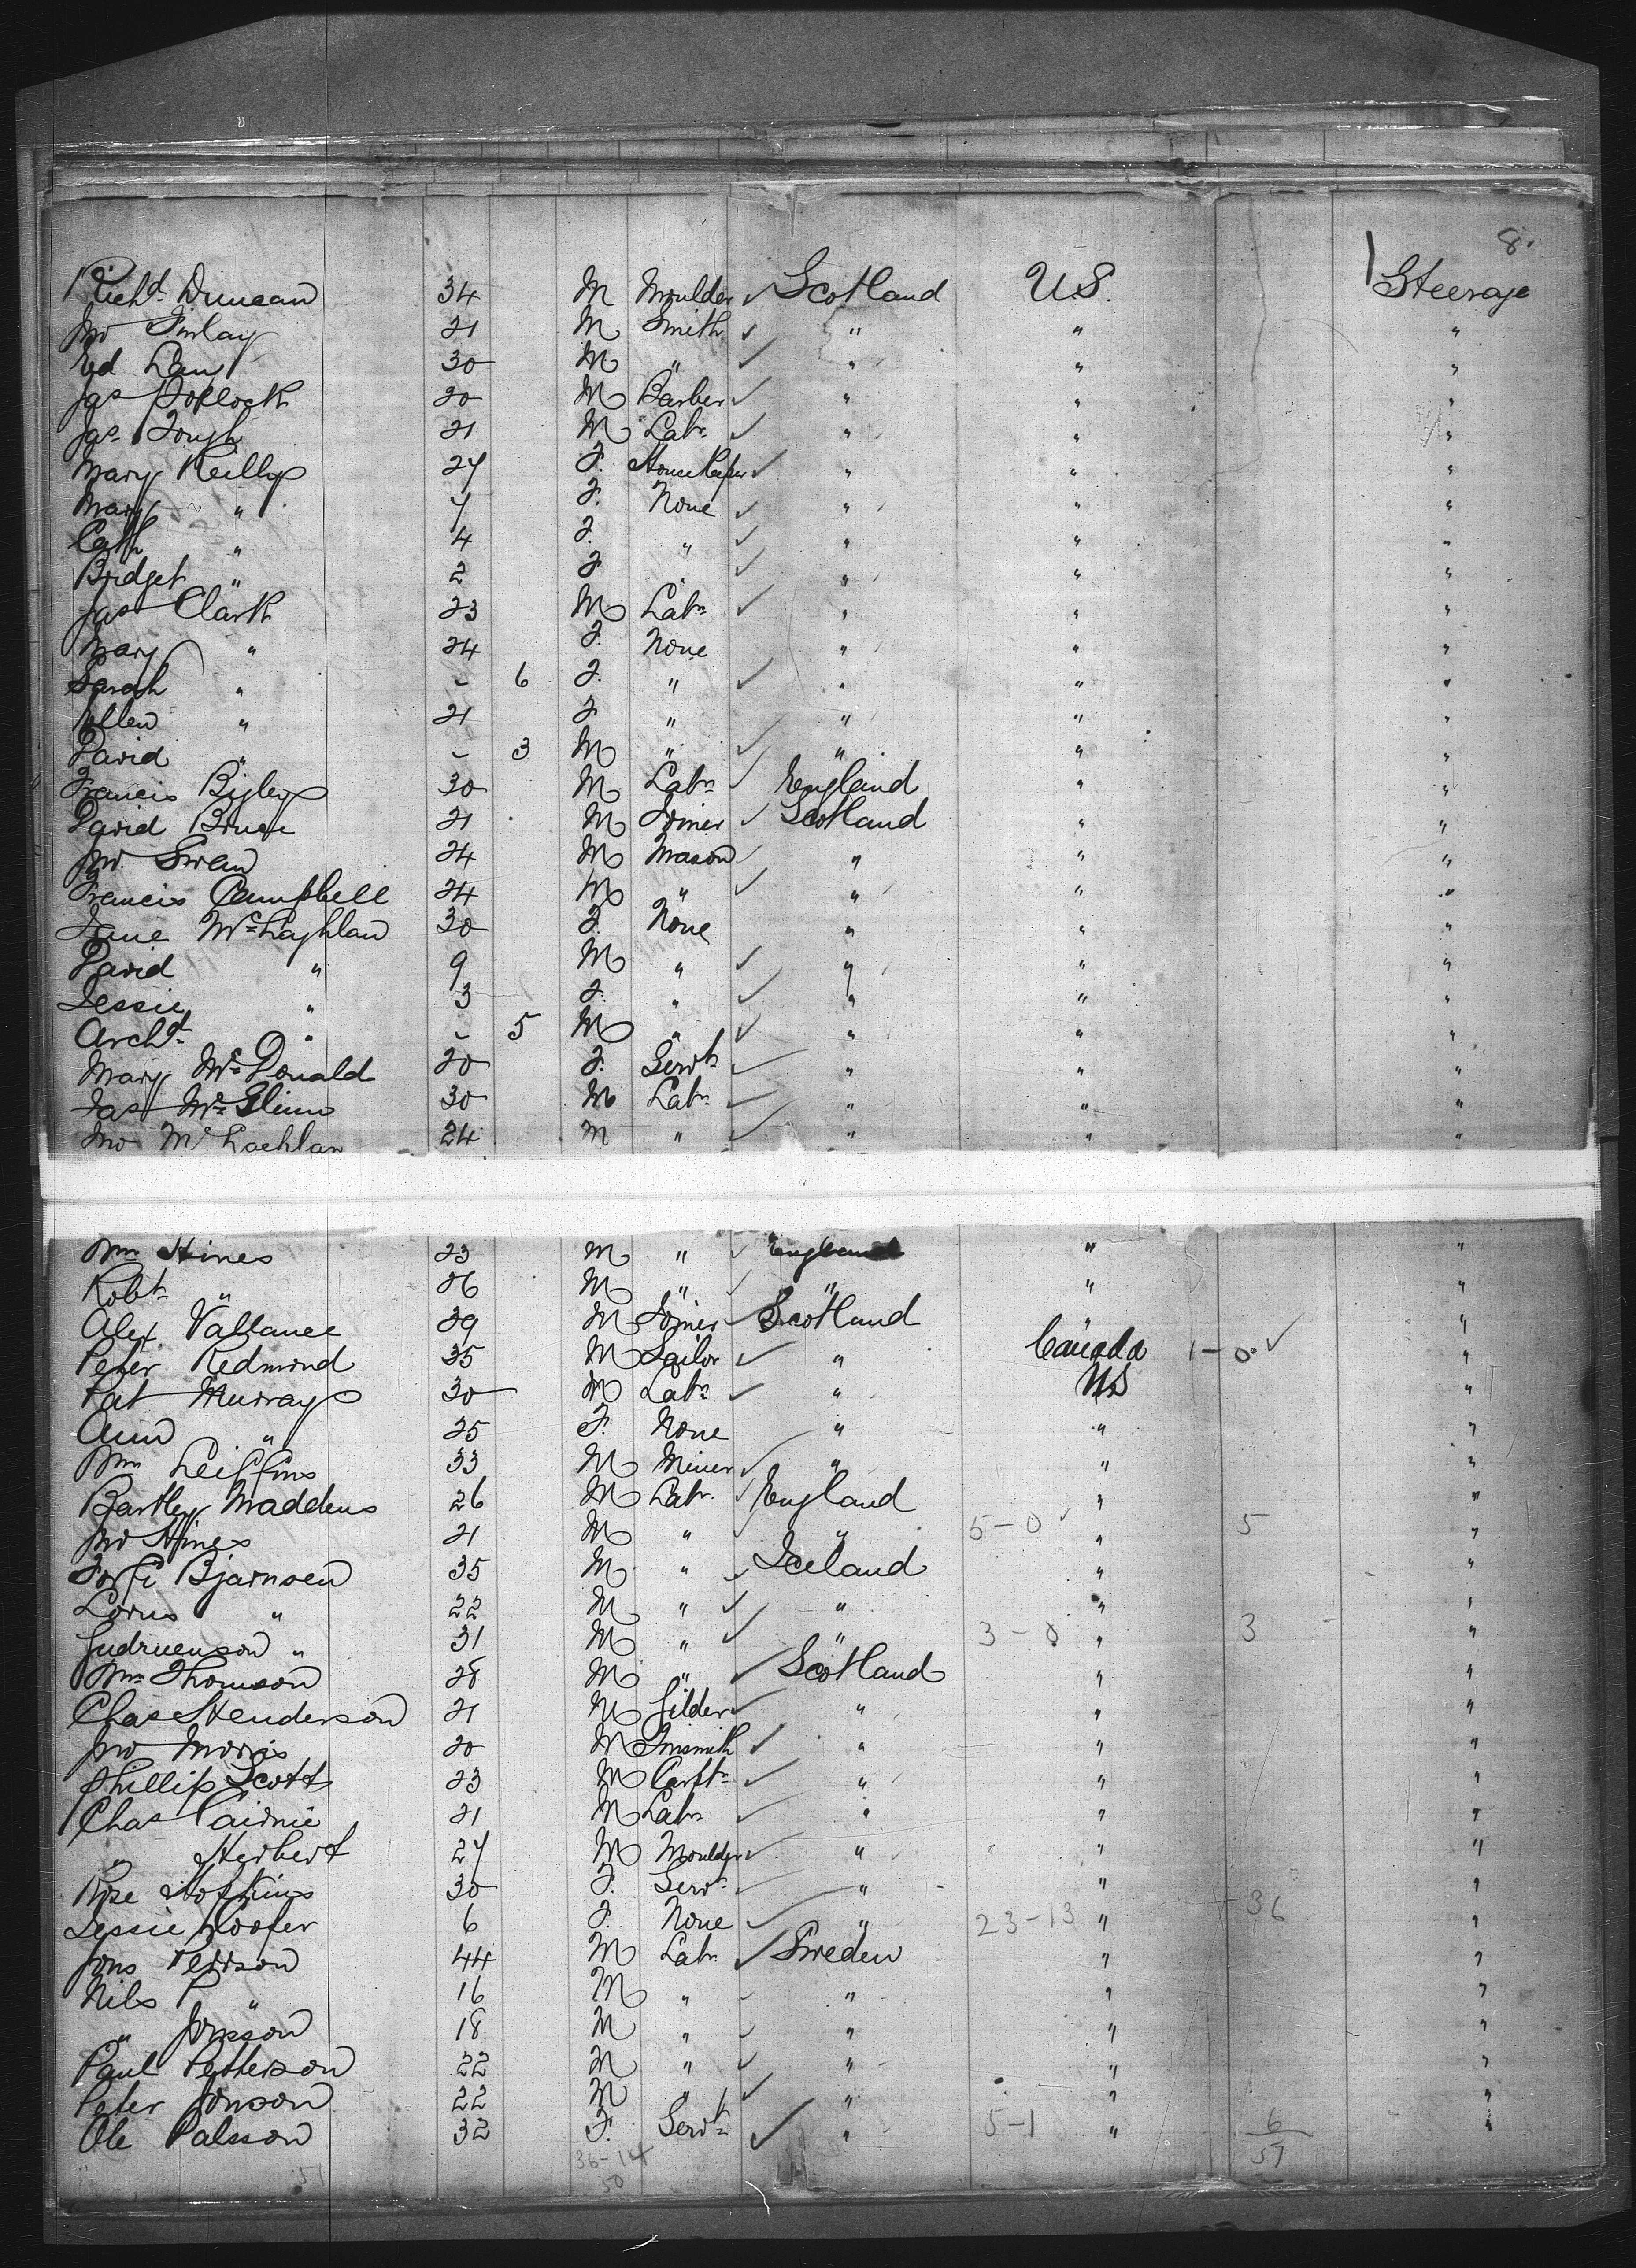 8.
Richd. Duncan 34 M Moulder ✓ Scotland U.S. Steerage
Jno Finlay 21 M Smith ✓ " " "
Ed 30 M " ✓ " " "
Jas Pollock 20 M Barber ✓ " " "
Jas Tough 21 M Labr ✓ " " "
Mary Reilly 27 F. ✓ " " "
Mary " 7 F. None ✓ " " "
Cath " 4 F. " ✓ " " "
Bridget " 2 F ✓ " " "
Jas Clark 23 M Labr ✓ " " "
Mary " 24 F. None " " "
Sarah " - 6 F. " ✓ " " "
Ellen " 21 F " ✓ " " "
David " - 3 M " ✓ " " "
Francis Bigley 30 M Labr ✓ England " "
David Bruce 21 M Joiner ✓ Scotland " "
Jno. Swan 24 M Mason ✓ " " "
Francis Campbell 24 M " ✓ " " "
Jane McLaghlan 30 F. None " " "
David " 9 M " ✓ " " "
Jessie " 3 F. " ✓ " " "
Archd. " - 5 M " ✓ " " "
Mary McDonald 20 F. Servt ✓ " " "
Jas McGlinn 30 M Labr ✓ " " "
Jno McLachlan 24 M " ✓ " " "
Wm Hines 23 M " ✓ England " "
Robt " 26 M " ✓ " " "
Alex Vallance 39 M Joiner ✓ Scotland "
Peter Redmond 35 M Sailor ✓ " Canada 1-0 ✓ "
Pat Murray 30 M Labr ✓ " US "
Ann " 25 F. None " " "
Wm 33 M Miner ✓ " " "
Bartley Maddens 26 M Labr. ✓ England " "
Jno Hines 21 M " ✓ " 5-0 ✓ " 5 "
Torfi Bjarnsen 35 M " ✓ Iceland " "
Lorus " 22 M " ✓ " " "
Gudruenson " 31 M " ✓ " 3-0 " 3 "
Wm Thomson 28 M " ✓ Scotland " "
Chas Henderson 21 M Gilder ✓ " " "
Jno Morris 20 M Tinsmith ✓ " " "
Phillip Scott 23 M Carptr ✓ " " "
Chas Cairnie 21 M Labr ✓ " " "
" Herbert 27 M Moulder ✓ " " "
Rose Hopkins 30 F. Servt ✓ " " "
Jessie Hooper 6 F. None ✓ " 23-13 " 36 "
Jons Perrson 44 M Labr ✓ Sweden " "
Nils P " 16 M " ✓ " " "
" Jonsson 18 M " ✓ " " "
Paul Petterson 22 M " ✓ " " "
Peter Jonson 22 M " ✓ " " "
Ole Palsson 32 F. Servt ✓ " 5-1 " 6 "
51 36-14 57
50